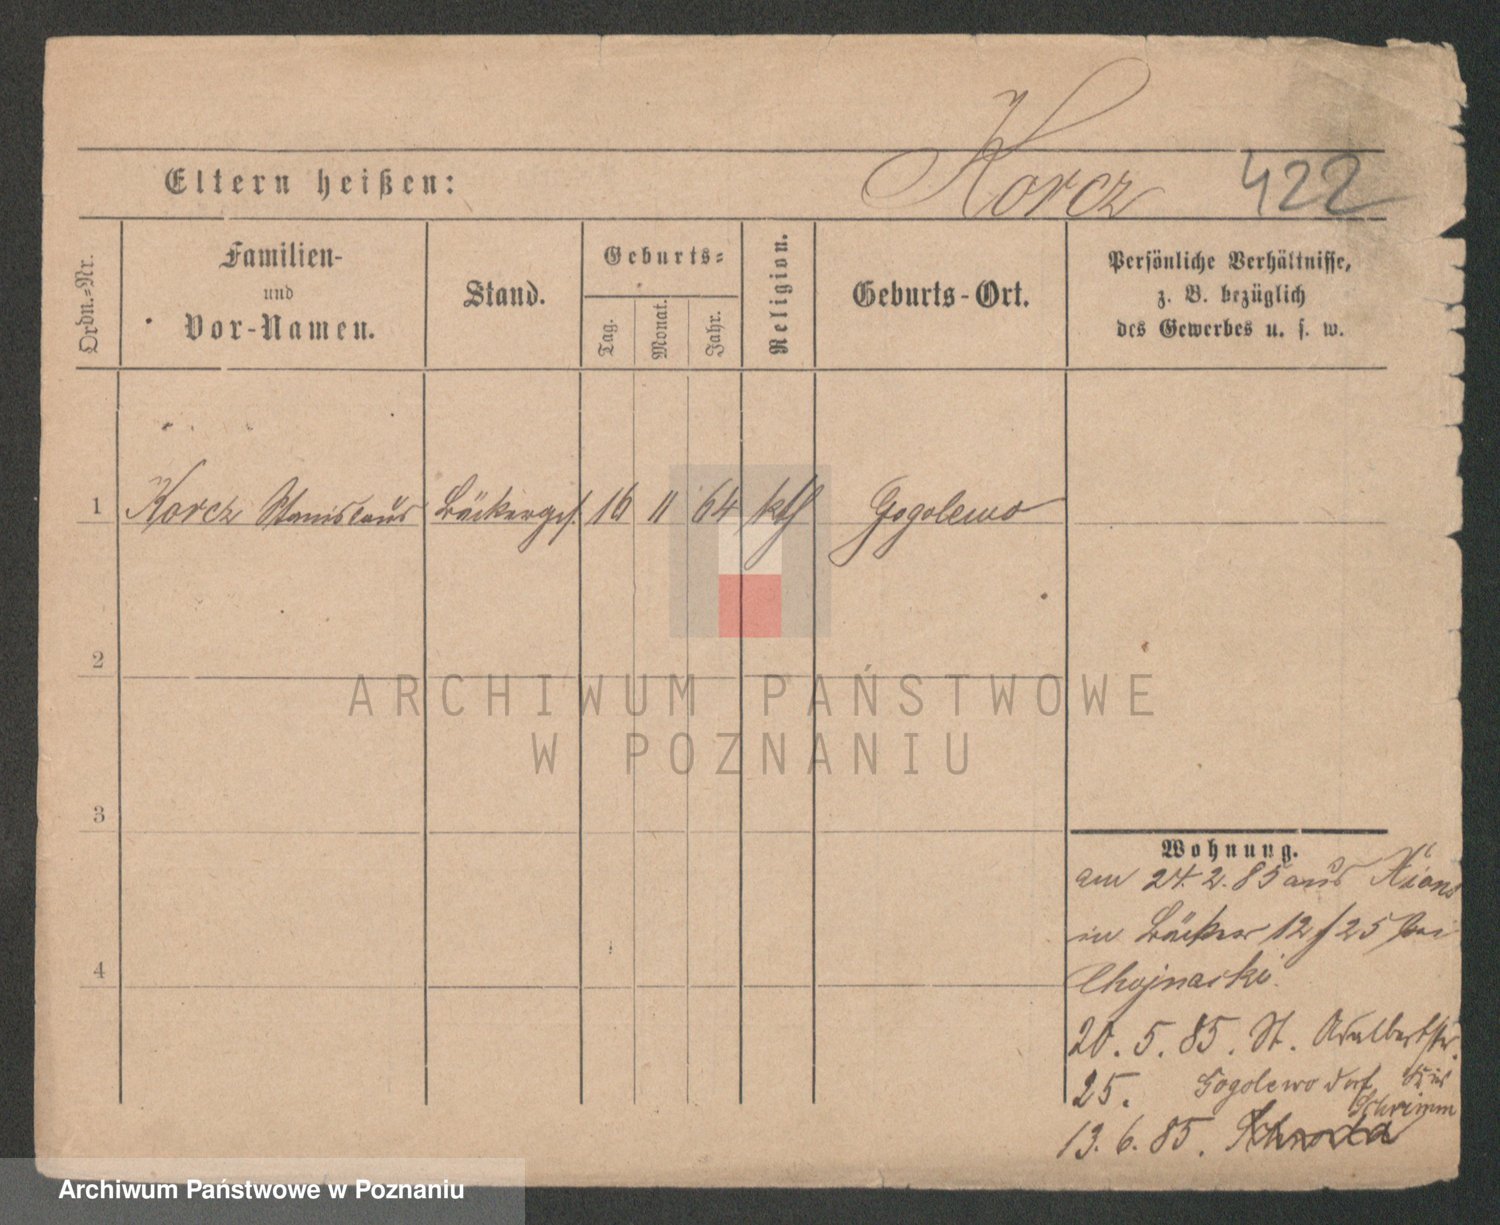 Korcz 422
Eltern heißen:
Ordn.=Nr.
Familien-
und
Vor-Namen.
Stand.
Geburts=
Tag.
Monat.
Jahr.
Religion.
Geburts-Ort.
Persönliche Verhältnisse,
z. B. bezüglich
des Gewerbes u. s. w.
1 Korcz Stanislaus Bäckerges. 16 11 64 kth Gogolewo
2
3
4
ARCHIWUM PAŃSTWOWE
W POZNANIU
Wohnung.
am 24.2.85 aus Xions
in Bäcker 12/25 bei
Chojnacki.
20.5.85. St. Adalbertstr.
25. Gogolewo Dorf
Schrimm
13.6.85. Schroda
Archiwum Państwowe w Poznaniu